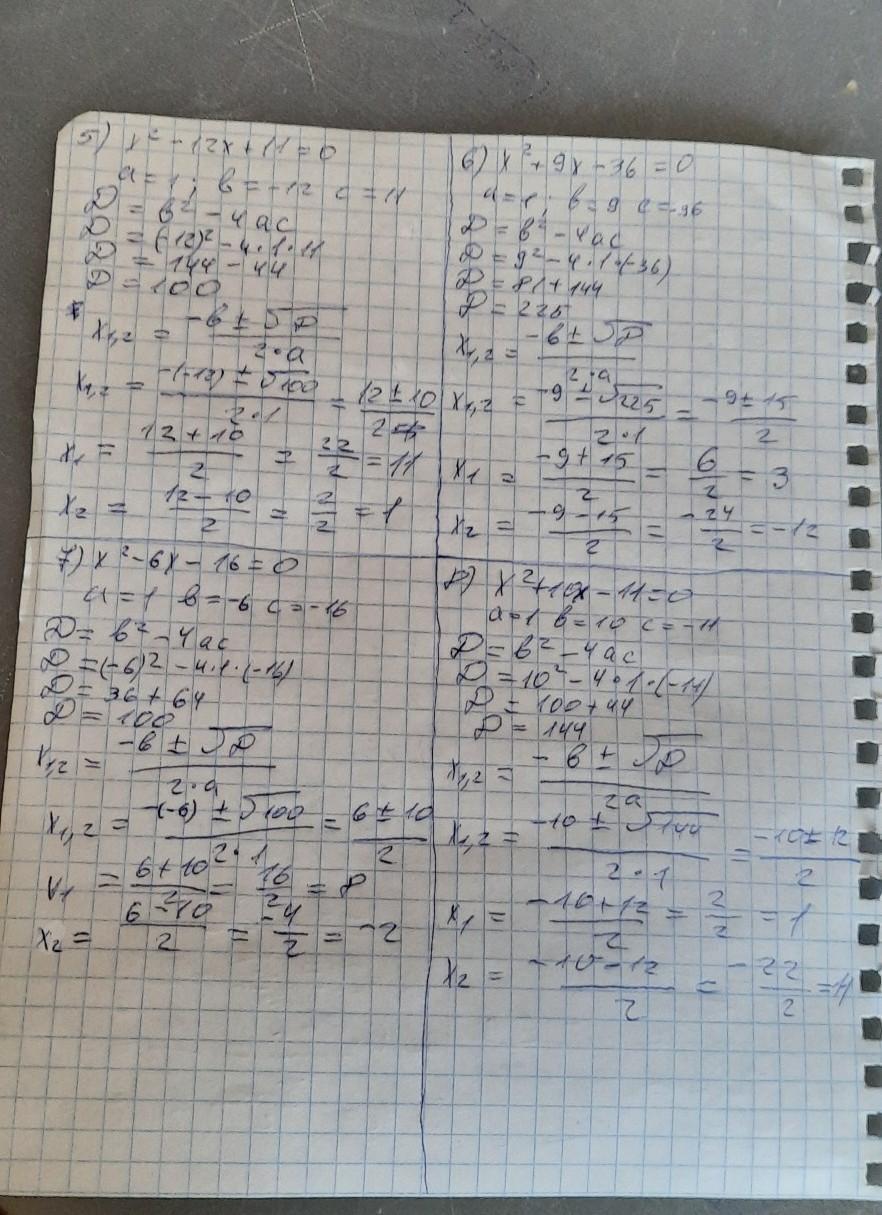 5) x² - 12x + 11 = 0
a = 1; в = -12 c = 11
D = в² - 4ac
D = (-12)² - 4·1·11
D = 144 - 44
D = 100
x₁,₂ = (-в ± √D) / (2·a)
x₁,₂ = (-(-12) ± √100) / (2·1) = (12 ± 10) / 2
x₁ = (12 + 10) / 2 = 22/2 = 11
x₂ = (12 - 10) / 2 = 2/2 = 1
6) x² + 9x - 36 = 0
a = 1; в = 9 c = -36
D = в² - 4ac
D = 9² - 4·1·(-36)
D = 81 + 144
D = 225
x₁,₂ = (-в ± √D) / (2·a)
x₁,₂ = (-9 ± √225) / (2·1) = (-9 ± 15) / 2
x₁ = (-9 + 15) / 2 = 6/2 = 3
x₂ = (-9 - 15) / 2 = -24/2 = -12
7) x² - 6x - 16 = 0
a = 1 в = -6 c = -16
D = в² - 4ac
D = (-6)² - 4·1·(-16)
D = 36 + 64
D = 100
x₁,₂ = (-в ± √D) / (2·a)
x₁,₂ = (-(-6) ± √100) / (2·1) = (6 ± 10) / 2
x₁ = (6 + 10) / 2 = 16/2 = 8
x₂ = (6 - 10) / 2 = -4/2 = -2
8) x² + 10x - 11 = 0
a = 1 в = 10 c = -11
D = в² - 4ac
D = 10² - 4·1·(-11)
D = 100 + 44
D = 144
x₁,₂ = (-в ± √D) / (2a)
x₁,₂ = (-10 ± √144) / (2·1) = (-10 ± 12) / 2
x₁ = (-10 + 12) / 2 = 2/2 = 1
x₂ = (-10 - 12) / 2 = -22/2 = 11